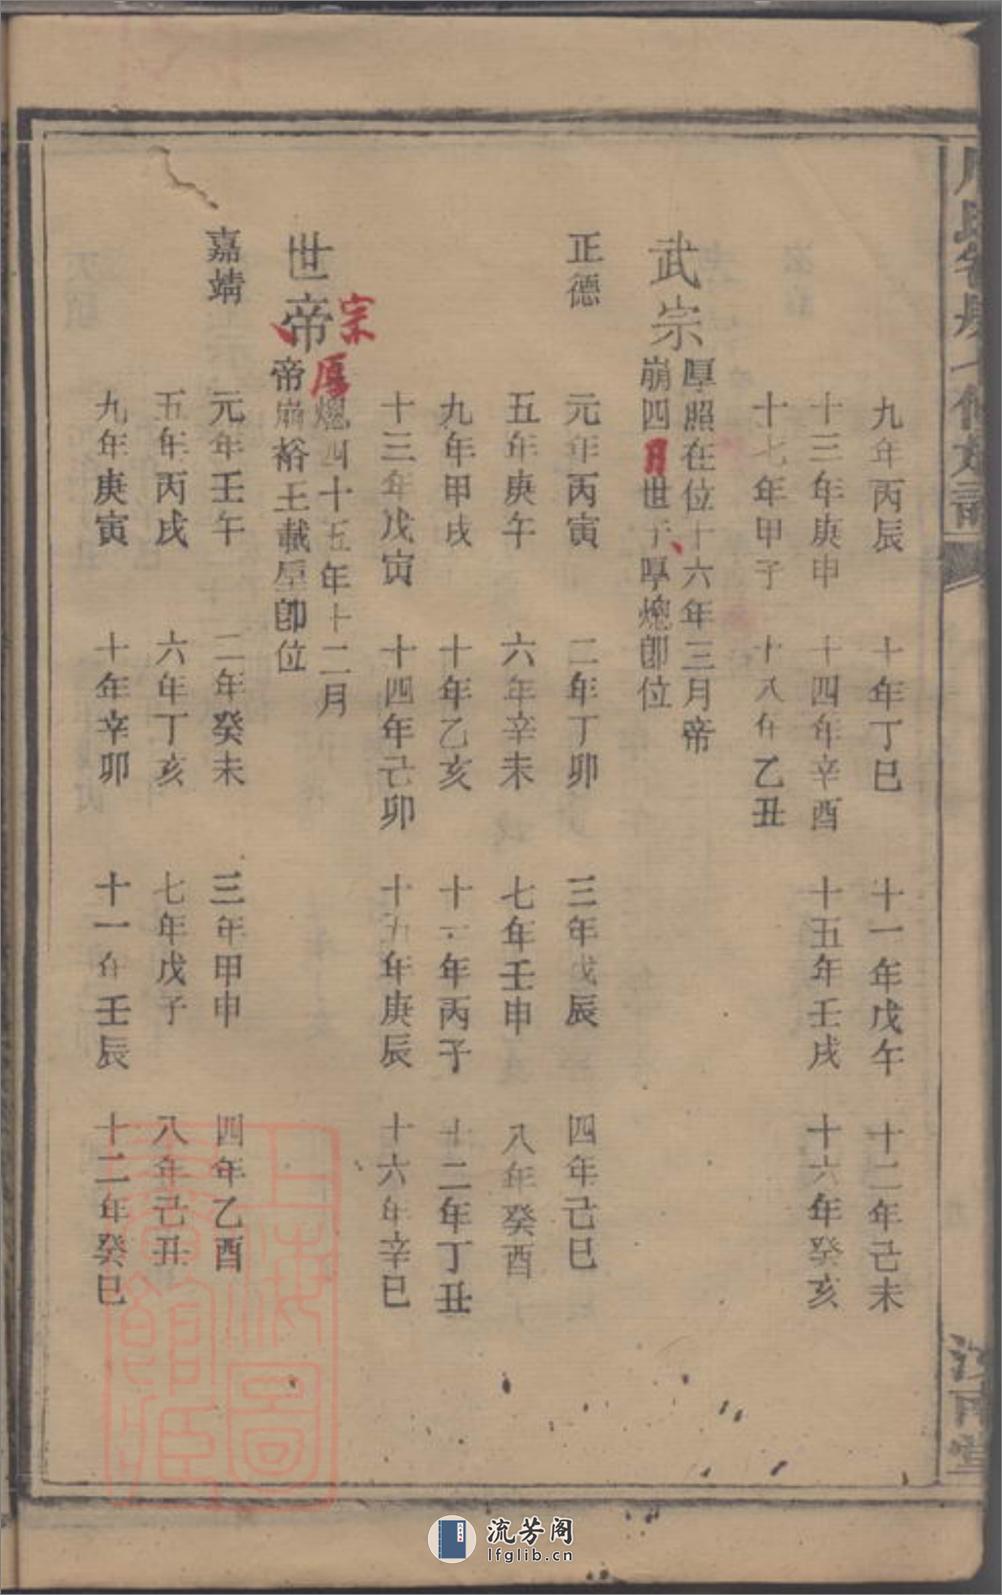 九年丙辰 十年丁巳 十一年戊午 十二年己未
十三年庚申 十四年辛酉 十五年壬戌 十六年癸亥
十七年甲子 十八年乙丑
武宗 厚照在位十六年三月帝
崩四月世子厚熜即位
正德 元年丙寅 二年丁卯 三年戊辰 四年己巳
五年庚午 六年辛未 七年壬申 八年癸酉
九年甲戌 十年乙亥 十一年丙子 十二年丁丑
十三年戊寅 十四年己卯 十五年庚辰 十六年辛巳
世帝 宗 厚熜四十五年十二月
帝崩裕王載垕即位
嘉靖 元年壬午 二年癸未 三年甲申 四年乙酉
五年丙戌 六年丁亥 七年戊子 八年己丑
九年庚寅 十年辛卯 十一年壬辰 十二年癸巳
上海圖書館藏
流芳阁
lfglib.cn